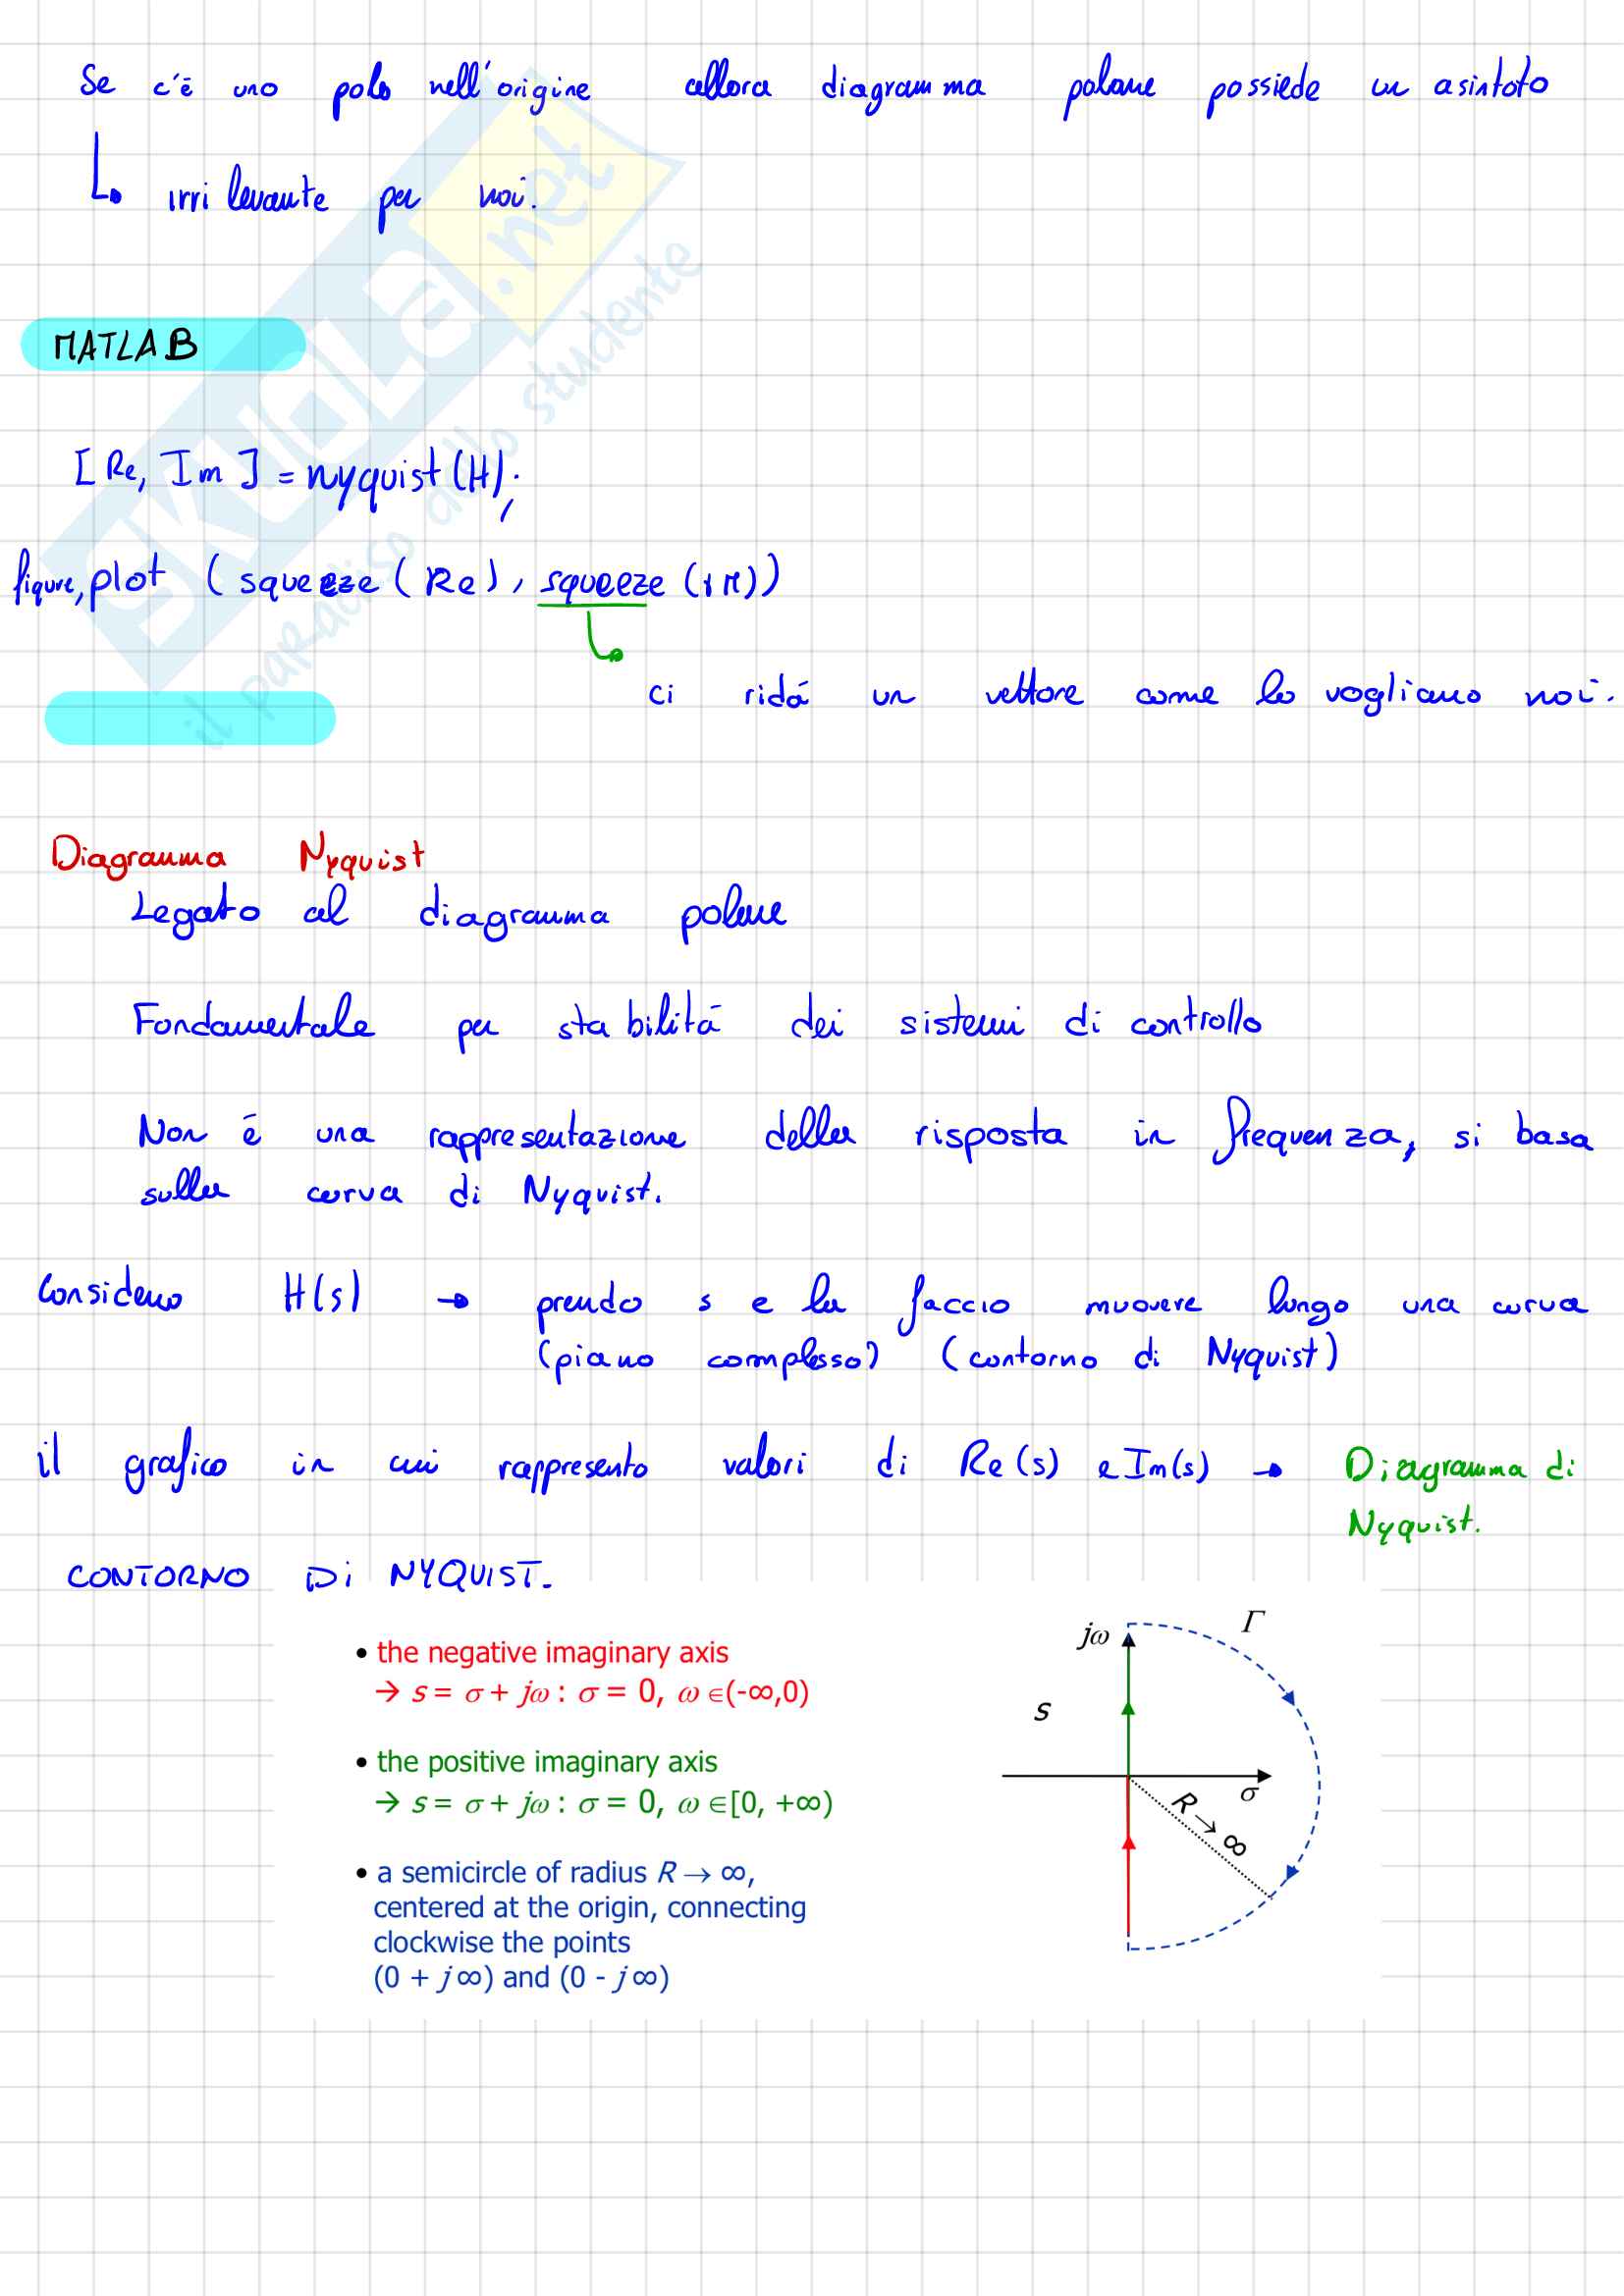 Se c'è uno polo nell'origine allora diagramma polare possiede un asintoto
irrilevante per noi.
SKUOLA.net
il paradiso dello studente
MATLAB
[Re, Im] = nyquist(H);
figure, plot (squeeze (Re), squeeze (IM))
ci ridà un vettore come lo vogliamo noi.
Diagramma Nyquist
Legato al diagramma polare
Fondamentale per stabilità dei sistemi di controllo
Non è una rappresentazione della risposta in frequenza, si basa
sulla curva di Nyquist.
Considero H(s) → prendo s e la faccio muovere lungo una curva
(piano complesso) (contorno di Nyquist)
il grafico in cui rappresento valori di Re(s) e Im(s) → Diagramma di
Nyquist.
CONTORNO DI NYQUIST.
• the negative imaginary axis
→ s = σ + jω : σ = 0, ω ∈(-∞,0)
• the positive imaginary axis
→ s = σ + jω : σ = 0, ω ∈[0, +∞)
• a semicircle of radius R → ∞,
centered at the origin, connecting
clockwise the points
(0 + j∞) and (0 - j∞)
jω
Γ
s
σ
R → ∞